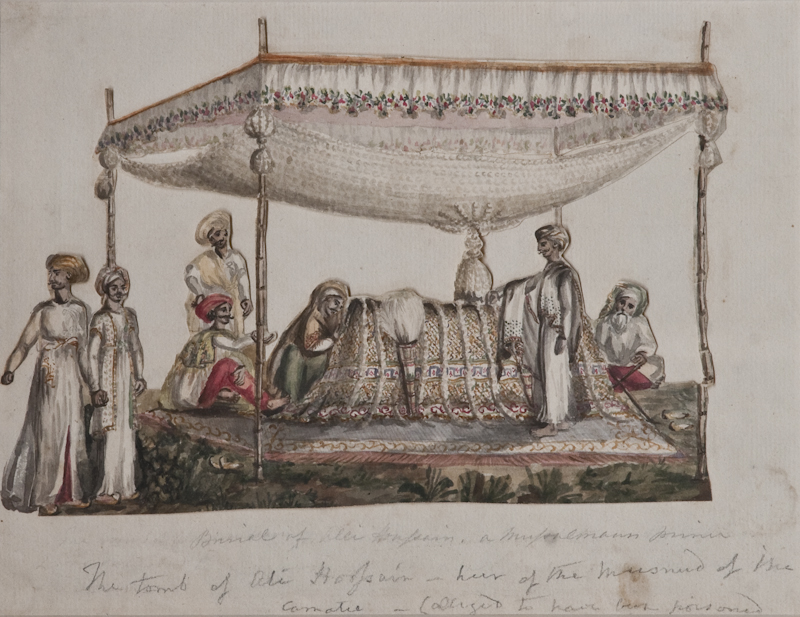 Burial of Ali Hossain, a Mussalmaun prince
The tomb of Ali Hossain – heir of the Musnud of the
Carnatic – (alleged to have been poisoned